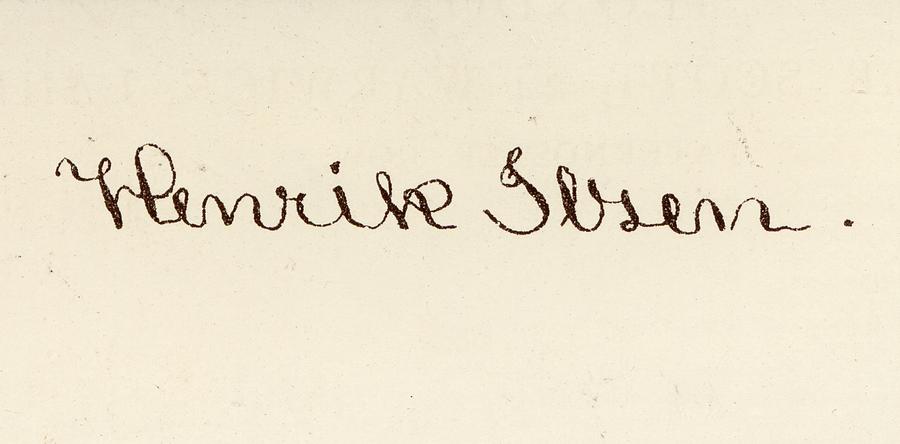 Henrik Ibsen.